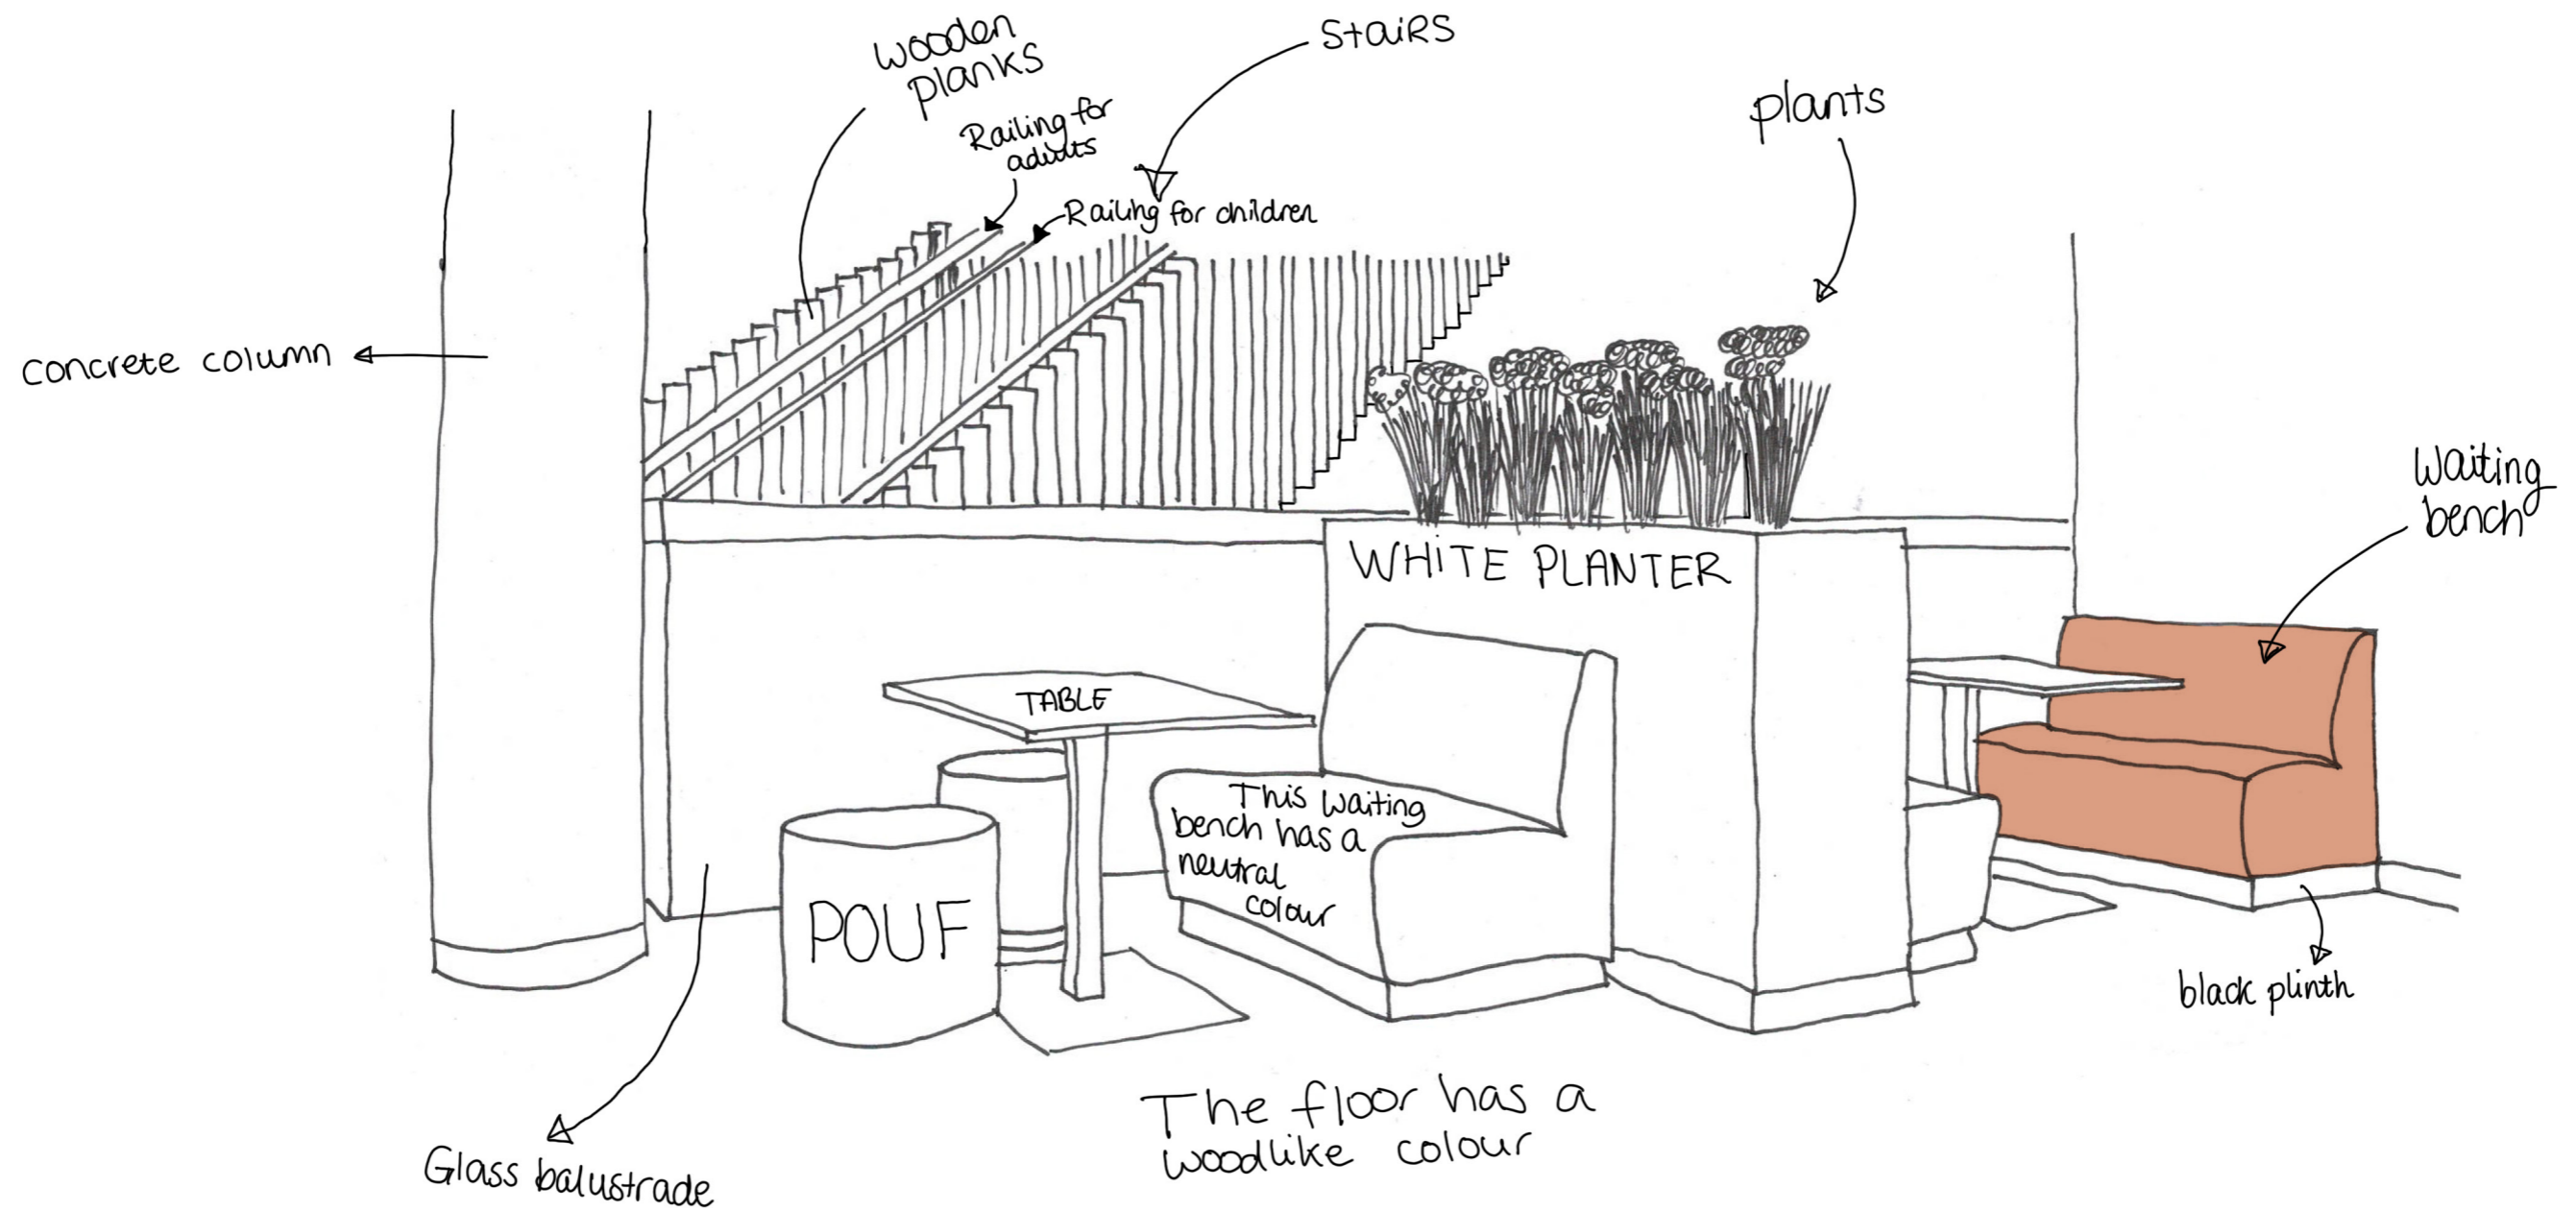 wooden
planks
Stairs
Railing for
adults
plants
Railing for children
concrete column
Waiting
bench
WHITE PLANTER
TABLE
This waiting
bench has a
neutral
colour
POUF
black plinth
The floor has a
woodlike colour
Glass balustrade